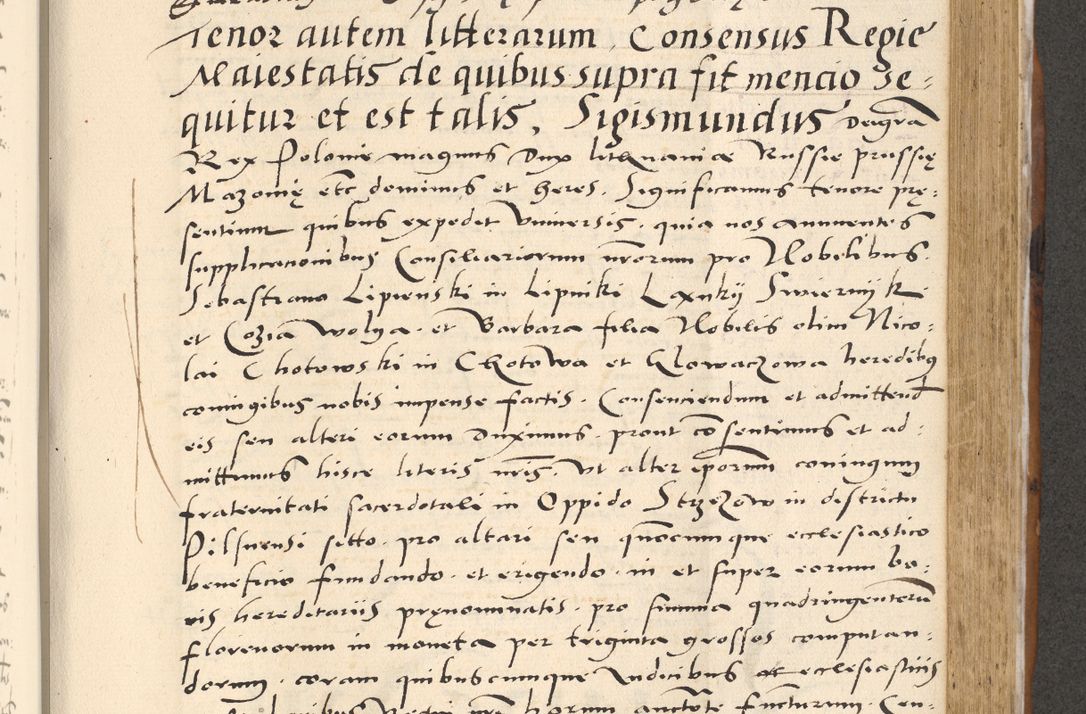 Tenor autem litterarum Consensus Regie
Maiestatis de quibus supra fit mencio se-
quitur et est talis, Sigismundus dei gr̄a
Rex Polonie magnus dux lithuaniæ Russie prussię
Mazouię etc̄ dominus et heres. Significamus tenore prę-
sentium quibus expedit vniuersis. quia nos annuentes
supplicacionibus Consiliariorum nr̄orum pro Nobilibus.
Sebastiano Lipienski in Lipniki Laznky Swiernijk.
et Cozia wolya. et Barbara filia Nobilis olim Nico-
lai Chotowski in Chotowa et Glowaczowa heredibus
coniugibus nobis impense factis. Consenciendum et admittend
eis seu alteri eorum duximus. prout cōsentimus et ad-
mittimus hisce literis nr̄is. Vt alter ip̄orum coniugum
fraternitati sacerdotali in Oppido Strzezow in districtu
Pilsnensi sitto. pro altari seu quōcumque ecclesiastico
beneficio fundando. et erigendo. in et super eorum bo-
nis hereditariis pręnominatis. pro summa quadringentorū
florenorum in moneta per triginta grossos computan-
dorum. coram quibuscumque Iudicibus ac ecclesiasticis
Regni horum auctōte functurum. Con-